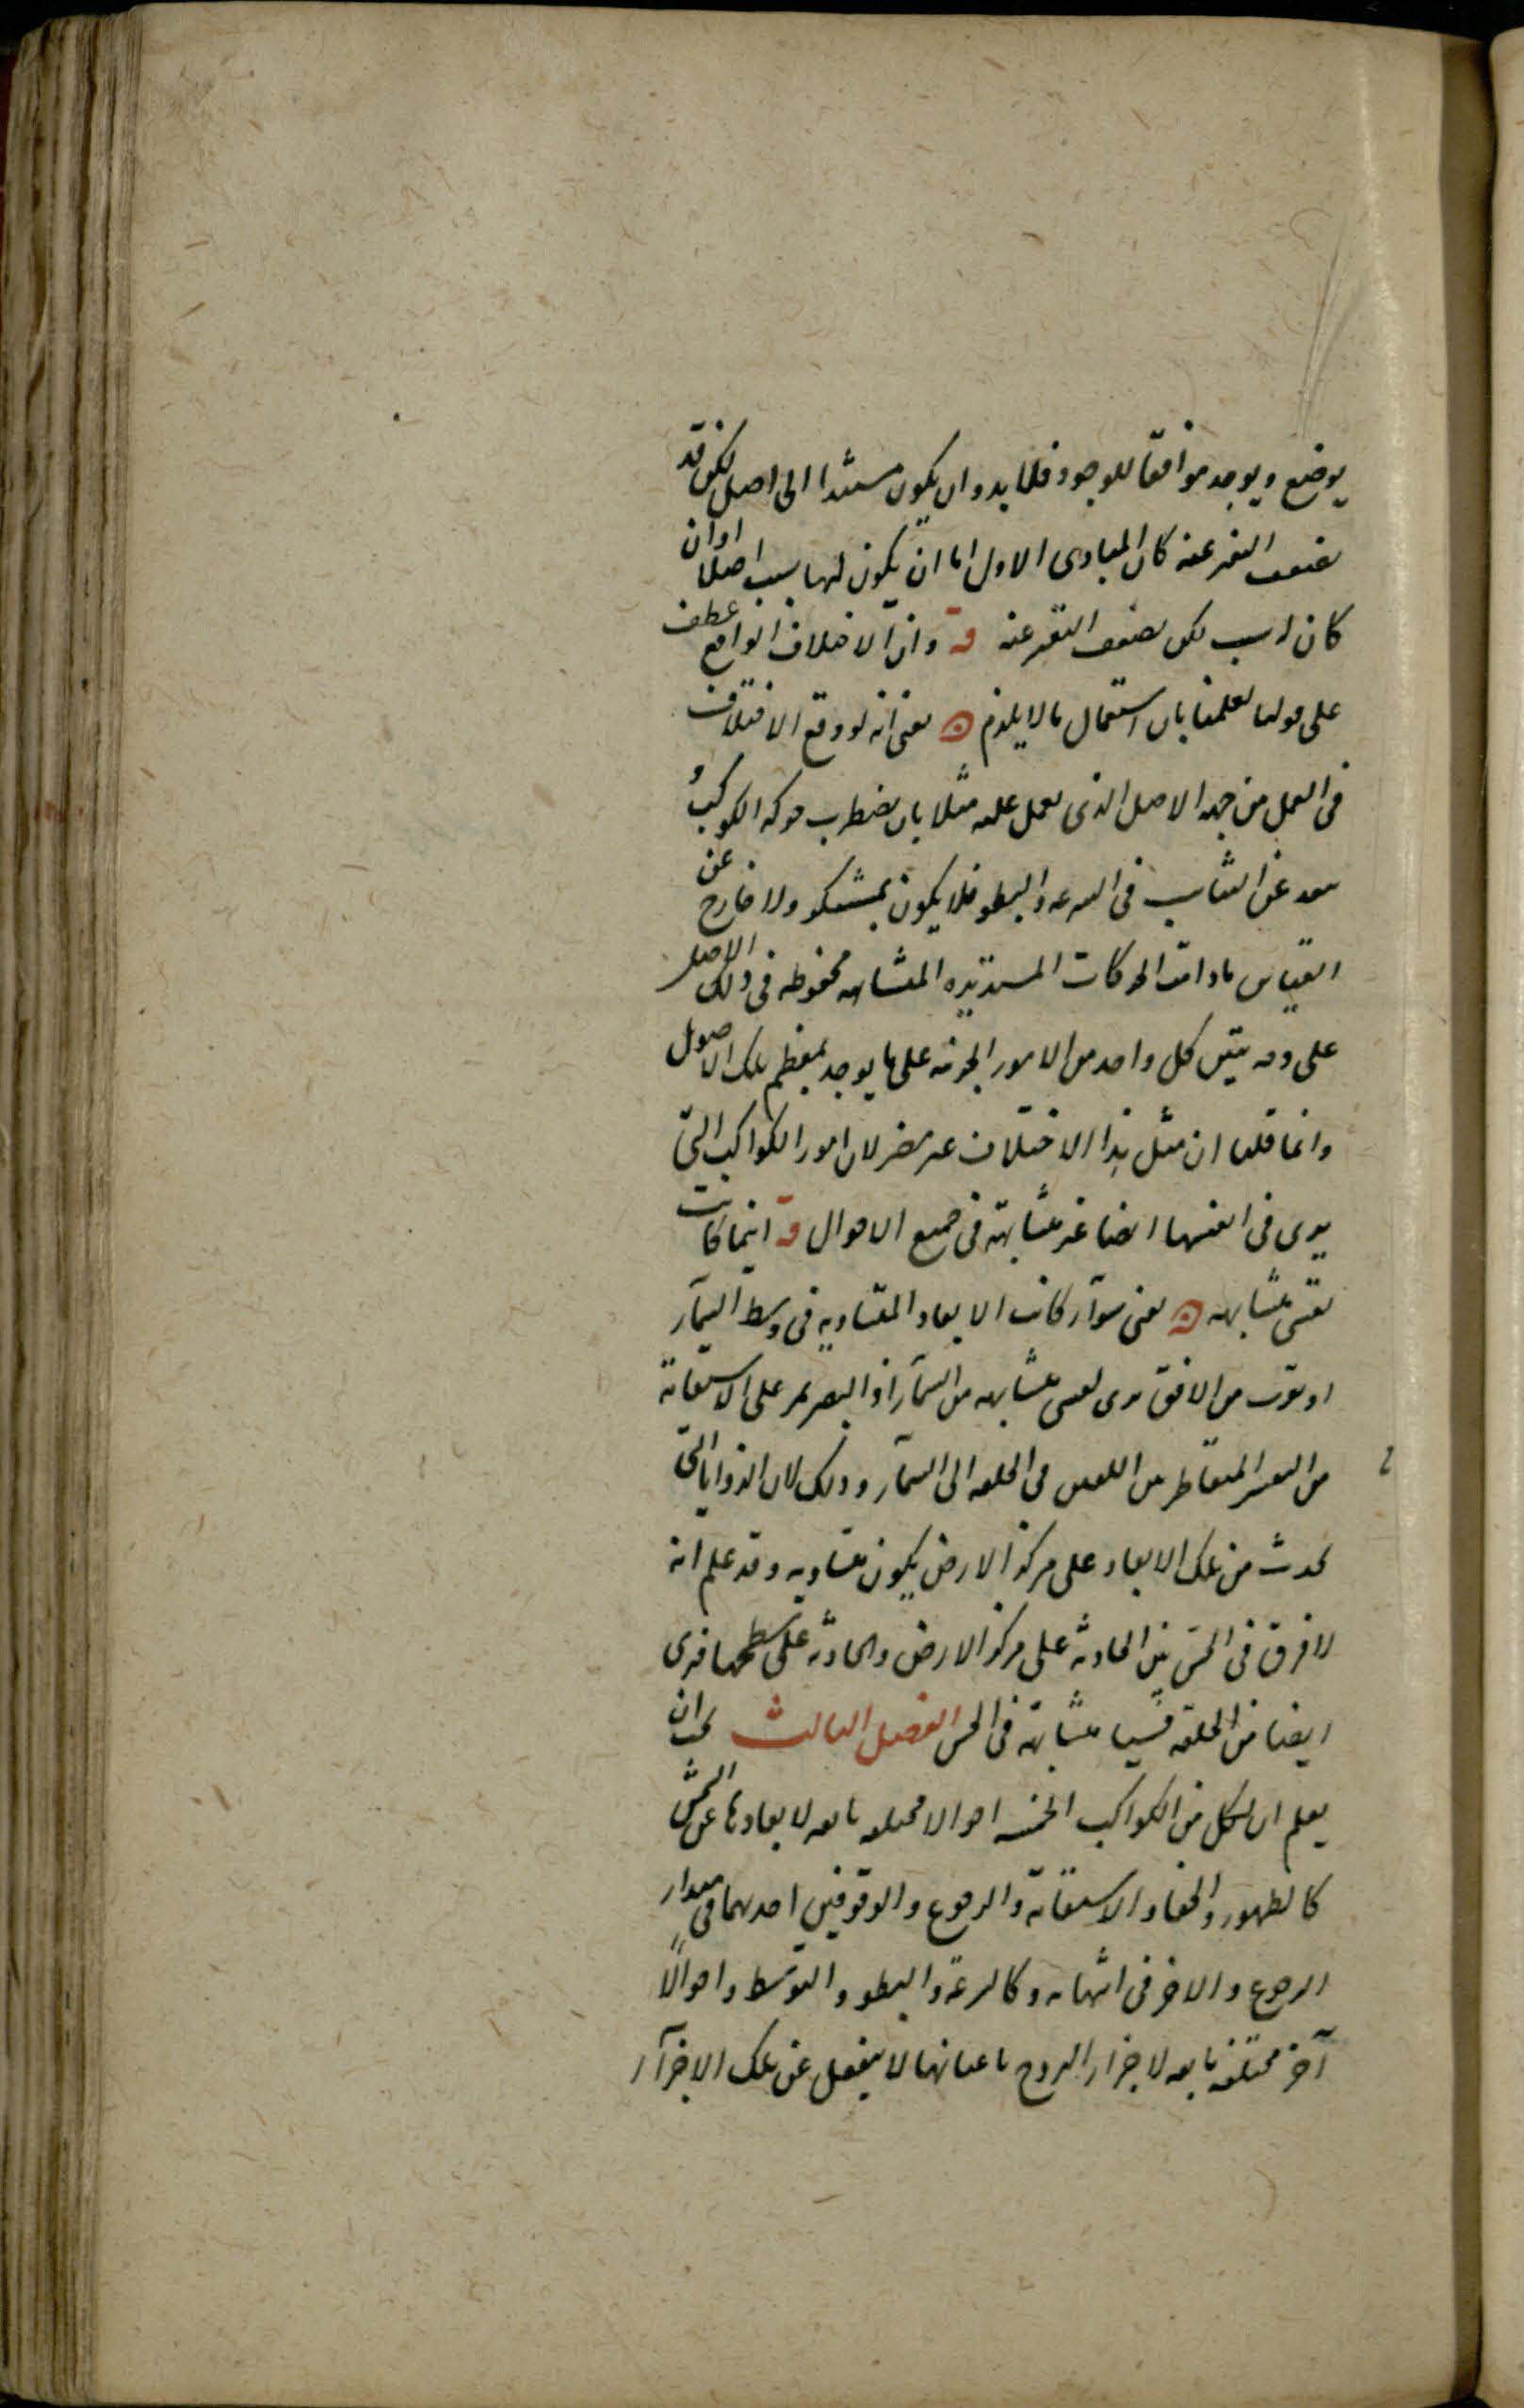 يوضع ويوجد موافقا للوجود فلابد وان يكون مستندا الى اصل لكن قد
يضعف التعبير عنه كان المبادى الاول اما ان يكون لها سبب اصلا او ان
كان له سبب لكن يضعف التعبير عنه قة وان الاختلاف الواقع عطف
على قولنا لعلمنا بان استعمال ما لا يلزم ۞ يعنى انه لو وقع الاختلاف
فى العمل من جهه الاصل الذى يعمل عليه مثلا بان يضطرب حركه الكوكب و
يبعد عن التناسب فى السرعه والبطو فلا يكون بمستنكر ولا خارج عن
القياس مادامت الحركات المستديره المتشابهه محفوظه فى ذلك الاصل
على وجه يتبين كل واحد من الامور الجزئيه على ما يوجد بمعظم تلك الاصول
وانما قلنا ان مثل هذا الاختلاف غير مضر لان امور الكواكب التى
يرى فى انفسها ايضا غير متشابهة فى جميع الاحوال قة اينما كانت
لقسى متشابهه ۞ يعنى سوآء كانت الابعاد المتساويه فى وسط السمآء
او بقرب من الافق يرى لقسى متشابهه من السمآء اذ البصر يمر على الاستقامة
من القسى المتقاطر بين اللقبتين فى الحلقه الى السمآء وذلك لان الزوايا التى
يحدث من تلك الابعاد على مركز الارض يكون متساويه وقد علم انه
لا فرق فى الحس بين الحادثه على مركز الارض والحادثه على سطحها فيرى
ايضا من الحلقه قسيا متشابهة فى الحس الفصل الثالث يجب ان
يعلم ان لكل من الكواكب الخمسه احوالا مختلفه تابعه لابعادها عن الشمس
كالظهور والخفاء والاستقامة والرجوع والوقوفين احدهما فى مبدا
الرجوع والاخر فى انتهائه وكالسرعة والبطو والتوسط واحوالًا
آخر مختلفه تابعه لاجزاء البروج باعيانها لا ينفصل عن تلك الاجزآء